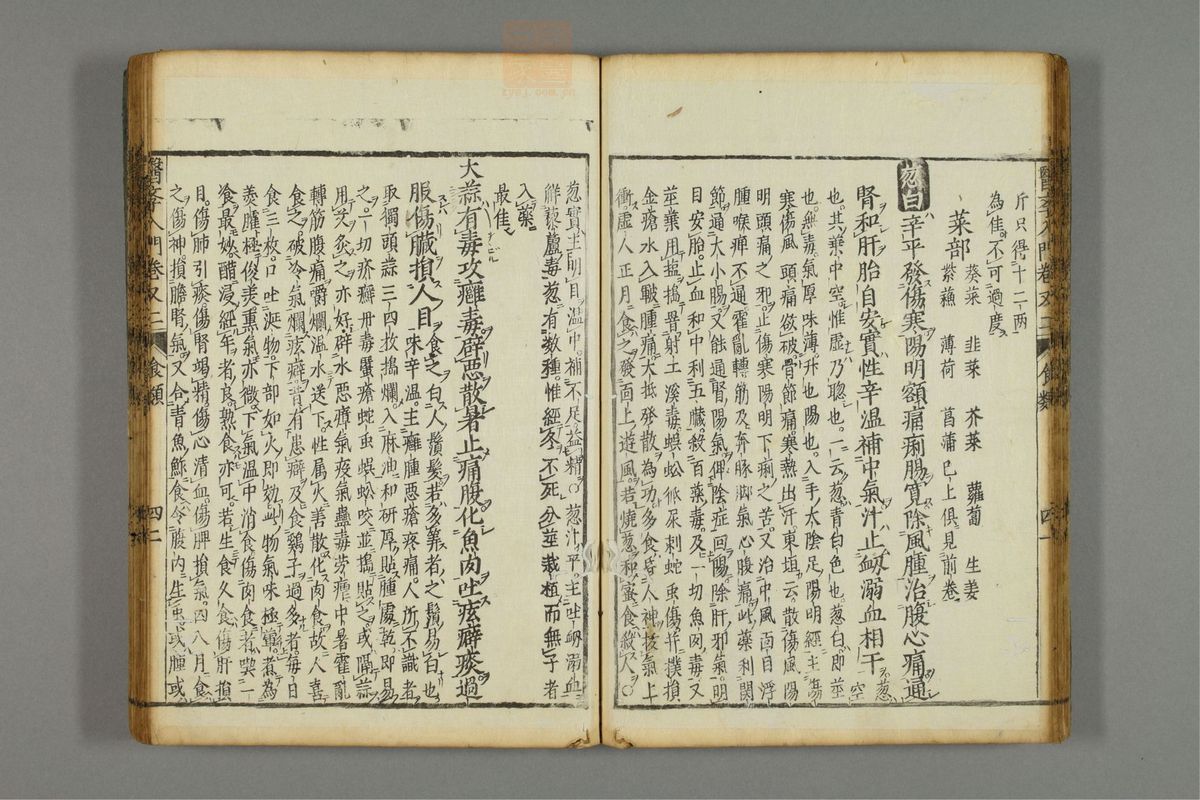 斤只得十二两
為佳不可過度
菜部 葵菜 韭菜 芥菜 蘿蔔 生姜
紫蘇 薄荷 菖蒲已上俱見前卷
葱白辛平發傷寒陽明頭痛痢腸寬除風腫治腹心痛通
腎和肝胎自安實性辛溫補中氣汁止衂溺血相干葱空
也其葉中空惟虛乃聰也一云葱青白色也葱白即莖
也無毒氣厚味薄升也陽也入手太陰足陽明經主傷
寒傷風頭痛欲破骨節痛寒熱出汗東垣云散傷風陽
明頭痛之邪止傷寒陽明下痢之苦又治中風面目浮
腫喉痺不通霍亂轉筋及奔豚脚氣心腹痛此藥利関
節通大小腸又能通腎陽氣俾陰症回陽除肝邪氣明
目安胎止血和中利五臟殺百藥毒及一切魚肉毒又
莖葉用搵搗罯射土溪毒蜈蚣狐尿刺蛇虫傷并撲損
金瘡水入皸腫痛大抵發散為功多食昏人神拔氣上
衝虛人正月食之發面上遊風若燒葱和蜜食殺人〇
葱實主明目溫中補不足益精〇葱汁平主吐衂溺血
解藜蘆毒葱有数種惟經冬不死分莖栽植而無子者
入藥
最佳
大蒜有毒攻癰毒辟惡散暑止痛腹化魚肉吐痃癖痰過
服傷臟損人目食之白人鬚髮若多蒜者之鬚易白也
味辛溫主癰腫惡瘡疼痛人所不識者
取獨頭蒜三四枚搗爛入麻油和研厚貼腫處乾即易
之一切疥癬丹毒蠶瘡蛇虫蜈蚣咬並搗貼之或隔蒜
用艾灸之亦好辟水惡瘴氣疫氣蠱毒劳瘧中暑霍亂
轉筋腹痛爵爛溫水送下性属火善散化肉食故人喜
食之破冷氣爛痃癖昔有患癖及食鷄子過多者每日
食三枚口吐涎物下部如火即効此物氣味極葷煮為
羮臛極俊美熏氣亦微下氣溫中消食傷肉食者喫一
飡最妙醋浸經年者良熟食亦可若生食久食傷肝損
目傷肺引痰傷腎竭精傷心清血傷脾損氣四八月食
之傷神損膽腎氣又合青魚鮓食令腹内生虫或腫或
醫斈入門卷又二 食類 四一
醫斈入門卷又二 食類 四二
zyyj.com.cn